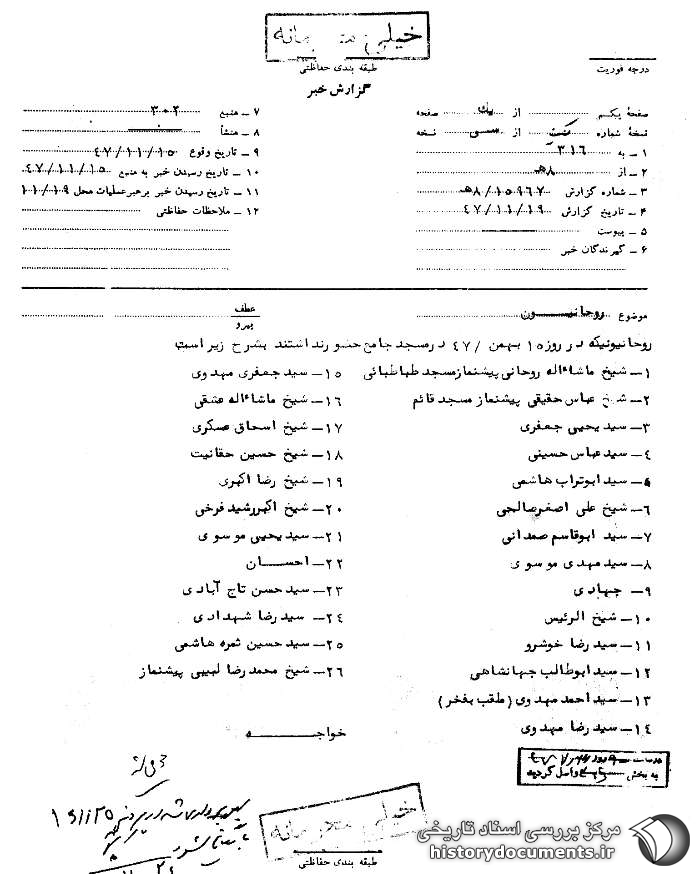 خیلی محرمانه
طبقه بندی حفاظتی
درجه فوریت
گزارش خبر
صفحهٔ یکم از یک صفحه
نسخهٔ شماره از سه نسخه
۱ – به ۳۱۶
۲ – از ۸ه
۳ – شماره گزارش ۸/۱۵۹۶۷ه
۴ – تاریخ گزارش ۴۷/۱۱/۱۹
۵ – پیوست
۶ – گیرندگان خبر
۷ – منبع ۳۰۲
۸ – منشأ
۹ – تاریخ وقوع ۴۷/۱۱/۱۵
۱۰ – تاریخ رسیدن خبر به منبع ۴۷/۱۱/۱۵
۱۱ – تاریخ رسیدن خبر برهبر عملیات محل ۱۱/۱۹
۱۲ – ملاحظات حفاظتی
موضوع روحانیون
عطف
پیرو
روحانیونیکه در روز ۱۵ بهمن /۴۷ در مسجد جامع حضور داشتند بشرح زیر است
۱– شیخ ماشاءاله روحانی پیشنماز مسجد طباطبائی
۲– شیخ عباس حقیقی پیشنماز مسجد قائم
۳– سید یحیی جعفری
۴– سید عباس حسینی
۵– سید ابوتراب هاشمی
۶– شیخ علی اصغر صالحی
۷– سید ابوقاسم صمدانی
۸– سید مهدی موسوی
۹– جهادی
۱۰– شیخ الرئیس
۱۱– سید رضا خوشرو
۱۲– سید ابوطالب جهانشاهی
۱۳– سید احمد مهدوی (ملقب بفخر)
۱۴– سید رضا مهدوی
۱۵– سید جعفری مهدوی
۱۶– شیخ ماشاءاله عشقی
۱۷– شیخ اسحاق عسکری
۱۸– شیخ حسین حقانیت
۱۹– شیخ رضا اکبری
۲۰– شیخ اکبر رشید فرخی
۲۱– سید یحیی موسوی
۲۲– احسان
۲۳– سید حسن تاج آبادی
۲۴– سید رضا شهدادی
۲۵– سید حسین ثمره هاشمی
۲۶– شیخ محمد رضا لبیبی پیشنماز
خواجه
در ساعت روز
به بخش واصل گردید
خیلی محرمانه
طبقه بندی حفاظتی
مرکز بررسی اسناد تاریخی
historydocuments.ir